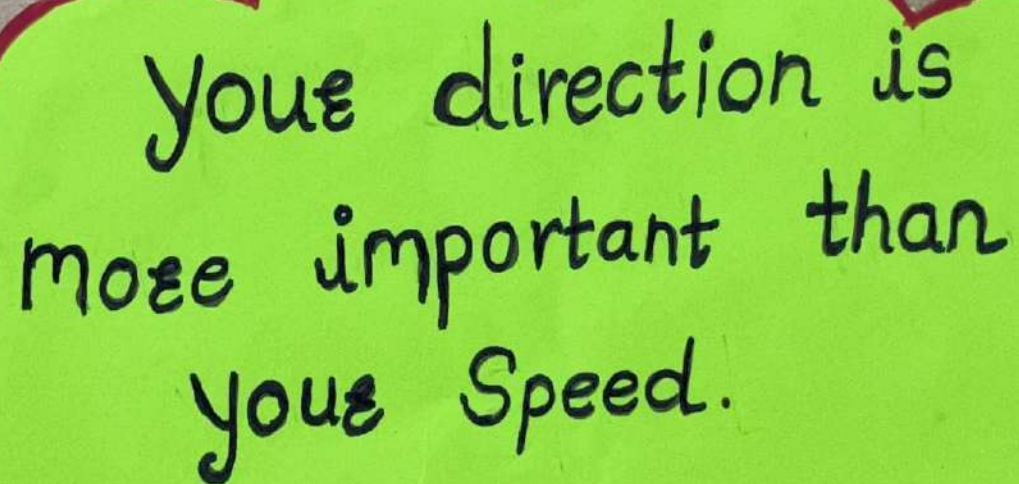 Your direction is
more important than
your Speed.